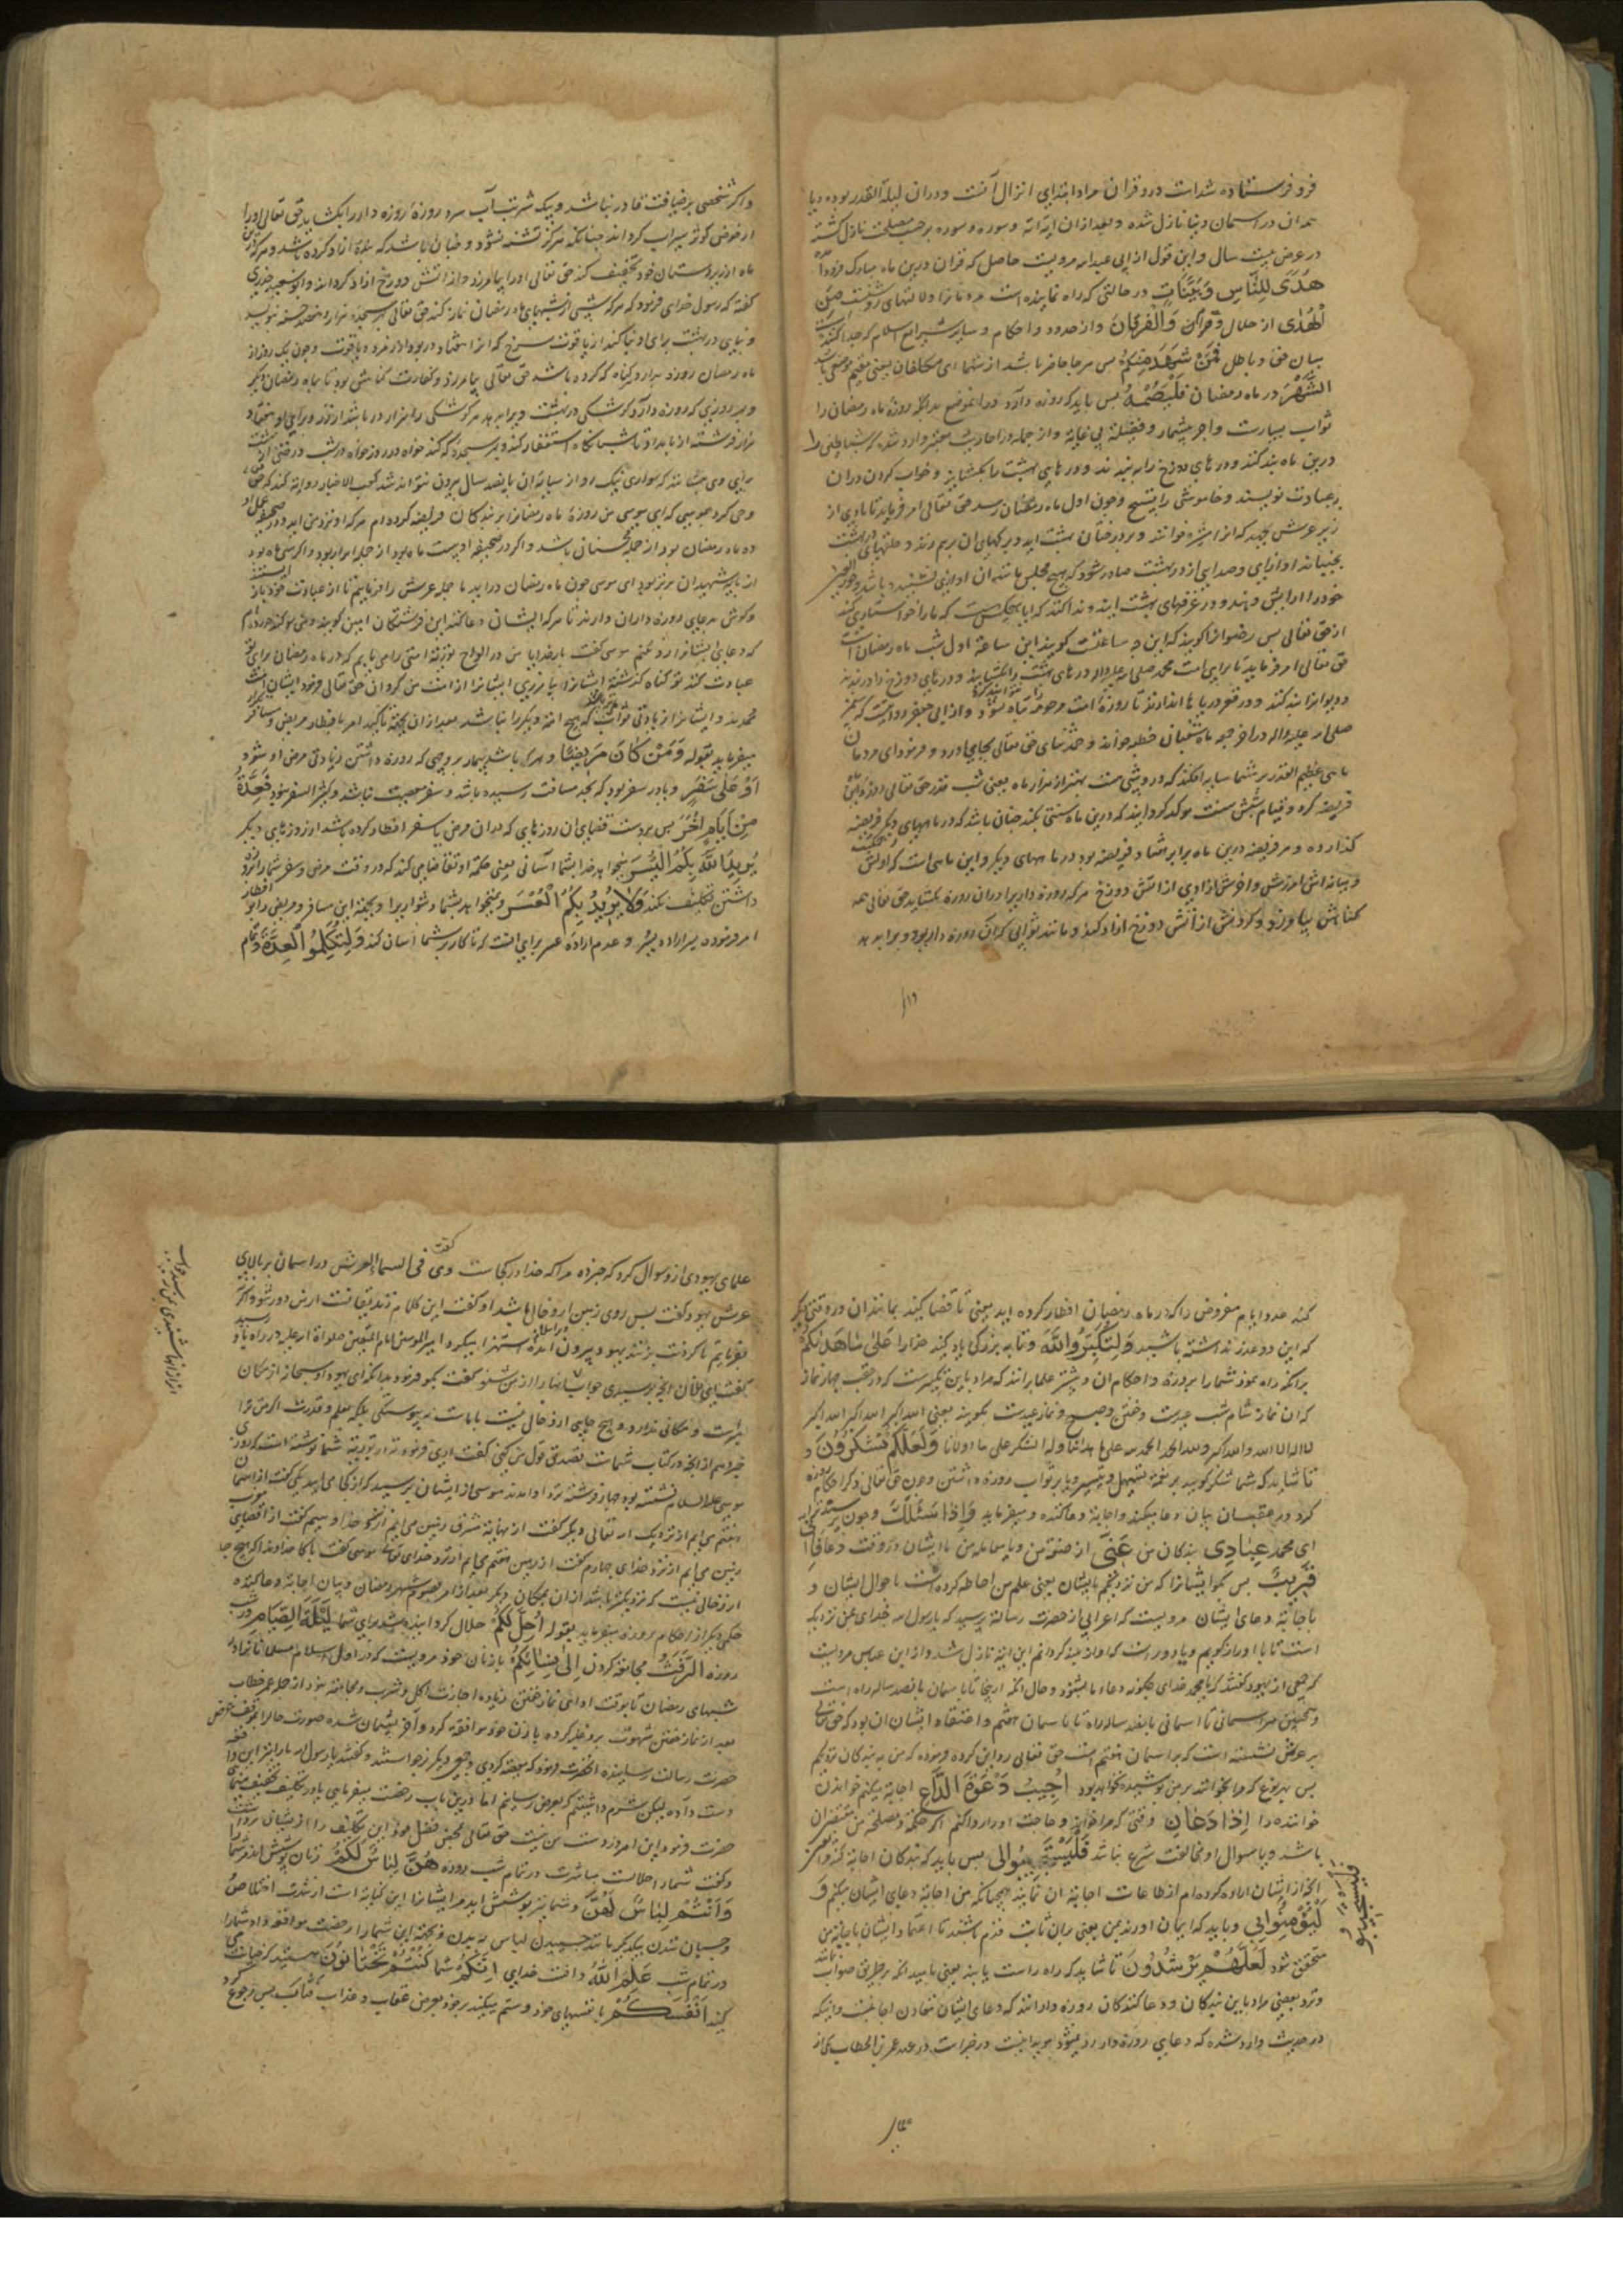 فرو فرستاده شده است درو قران مراد ابتدای انزال آنست ودران لیلة القدر بوده و یا
همه ان در اسمان دنیا نازل شده و بعد ازان ایه ایه و سوره و سوره برحسب مصلحت نازل کشته
در عرض بیست سال و این قول از ابی عبدالله مرویست حاصل که قران درین ماه مبارک فرود آمده
هُدًی لِلنَّاسِ وَبَیِّنَاتٍ در حالتی که راه نماینده است مردمانرا و دلالتهای روشنست مِنَ
الْهُدٰی از حلال و حرام وَالْفُرْقَانِ واز حدود و احکام و سایر شرایع اسلام که جدا کننده است
میان حق و باطل فَمَنْ شَهِدَ مِنْکُمُ پس هرجا حاضر باشد از شما ای مکلفان یعنی مقیم
الشَّهْرَ در ماه رمضان فَلْیَصُمْهُ پس باید که روزه دارد بدانکه روزه ماه رمضان را
ثواب بسیارست واجر بیشمار و فضیلة بی غایة واز جمله در احادیث معتبره وارد شده که شیاطین را
درین ماه بند کنند و درهای دوزخ را به بندند و درهای بهشت را بکشایند و خواب کردن دران
بعبادت نویسند و خاموشی را تسبیح و چون اول ماه رمضان رسد حق تعالی امر فرماید تا بادی از
زیر عرش بجهد که انرا مثیره خوانند و بر درختان بهشت اید و برکهای ان برهم زند و حلقهای در بهشت
بجنباند و اوازی و صدایی از در بهشت صادر شود که هیچ مجلس مانند ان اوازی نشنیده باشد و حورالعین
خود را ارایش دهند و در غرفهای بهشت ایند و ندا کنند که ایا هیچکس هست که ما را خواستاری کند
از حق تعالی پس رضوانرا کویند که این چه ساعتست کوید این ساعة اول شب ماه رمضان است
حق تعالی امر فرماید تا برای امت محمد صلی الله علیه واله درهای بهشت را بکشایند و درهای دوزخ را در بندند
و دیوانرا بند کنند و در قعر دریاها اندازند تا روزه امت مرحومه تباه نشود و از ابی جعفر روایت که پیغمبر
صلی الله علیه واله در اخر جمعه ماه شعبان خطبه خواند و حمد و ثنای حق تعالی بجای اورد و فرمود ای مردمان
ماهی عظیم القدر بر شما سایه افکند که درو شبی هست بهتر از هزار ماه یعنی شب قدر حق تعالی روزه این ماه
فریضه کرد و قیام شبش سنت موکد کردانید که درین ماه سنتی بکند چنان باشد که در ماههای دیکر فریضه
کذارده و هر فریضه درین ماه برابر هفتاد فریضه بود در ماههای دیکر و این ماهی است که اولش
و میانه اش امرزش و اخرش ازادی از اتش دوزخ هرکه روزه دار برادران روزه بکشاید حق تعالی همه
کناهش بیامرزد و کردنش از اتش دوزخ ازاد کند و مانند ثوابی که ان روزه دار بود و برا بدهد
واکر شخصی بر ضیافت قادر نباشد و بیک شربت آب سرد روزهٔ روزه دار را بکشاید حق تعالی اورا
از حوض کوثر سیراب کرداند چنانکه هرکز تشنه نشود و چنان باشد که بندهٔ ازاد کرده باشد و هرکه درین
ماه از زیردستان خود تخفیف کند حق تعالی اورا بیامرزد و از اتش دوزخ ازاد کرداند و ابو سعید خدری
کفته که رسول خدای فرمود که هرکه شبی از شبهای ماه رمضان نماز کند حق تعالی بهر سجده هزار و هفتصد حسنه بنویسد
و بنایی در بهشت برای او بنا کند از یاقوت سرخ که انرا هفتاد در بود از زمرد و یاقوت و چون یک روز از
ماه رمضان روزه بدارد هر کناه که کرده باشد حق تعالی بیامرزد و کفارت کناهش بود تا بماه رمضان دیکر
و بهر روزی که روزه دارد کوشکی در بهشت و برا بدهد هر کوشکی را هزار در باشد از زر و برای او هفتاد
هزار فرشته از بامداد تا شبانکاه استغفار کند و بهر سجدهٔ که کند خواه در روز خواه در شب درختی از بهشت
برای وی بنشانند که سواری نیک رو از سایه ان پانصد سال بیرون نتواند شد کعب الاخبار روایة کند که حق تعالی
وحی کرد بموسی که ای موسی من روزهٔ ماه رمضانرا بر بندکان فریضه کرده ام هرکه او نزد من اید و در صحیفه عمل او
ده ماه رمضان بود از جمله محسنان باشد و اکر در صحیفه او بیست ماه بود از جمله ابرار بود و اکر سی ماه بود
از پایه شهیدان برتر بود ای موسی چون ماه رمضان دراید ما حمله عرش را فرماییم تا از عبادت خود باز ایستند
و کوش بدعای روزه داران دارند تا هرکه ایشانی دعا کند این فرشتکان امین کویند و من سوکند خورده ام
که دعای ایشانرا رد نکنم موسی کفت بار خدایا من در الواح توریة امتی را می یابم که در ماه رمضان برای تو
عبادت کنند تو کناه کذشته ایشانرا بیامرزی ایشانرا از امت من کردان حق تعالی فرمود ایشان امت
محمدند و ایشانرا از زیادتی ثواب باشد که هیچ امة دیکر را نباشد بعد ازان بجهة تاکید امر بافطار مریض و مسافر تکرار
میفرماید بقوله وَمَنْ کَانَ مَرِیضًا و هرکه باشد بیمار بروجهی که روزه داشتن زیادتی مرض او شود
اَوْ عَلٰی سَفَرٍ و یا در سفر بود که بحد مسافت رسیده باشد و سفر معصیت نباشد و کثیر السفر نبود فَعِدَّةٌ
مِنْ اَیَّامٍ اُخَرَ پس بروست قضای ان روزهای که بدان مرض یا سفر افطار کرده باشد از روزهای دیکر
یُرِیدُ اللّٰهُ بِکُمُ الْیُسْرَ میخواهد خدا بشما آسانی یعنی حکمة او تقاضای می کند که در وقت مرض و سفر شما را بروزه
داشتن تکلیف نکند وَلَا یُرِیدُ بِکُمُ الْعُسْرَ و نمیخواهد بشما دشواریرا و بجهة این مسافر و مریض را بافطار
امر فرموده پس اراده یسر و عدم ارادهٔ عسر برای انست که تا کار بر شما اسان کند وَلِتُکْمِلُوا الْعِدَّةَ و تمام
کنید عدد ایام مفروض را که در ماه رمضان افطار کرده اید یعنی تا قضا کنید بمانند ان در وقتی دیکر
که این دو عذر نداشته باشید وَلِتُکَبِّرُوا اللّٰهَ و تا به بزرکی یاد کنید خدا را عَلٰی مَا هَدٰیکُمْ
برانکه راه نمود شما را بروزه و احکام ان و بیشتر علما برانند که مراد باین تکبیر است که در عقب چهار نماز
که ان نماز شام شب عیدست و خفتن و صبح و نماز عیدست بکویند یعنی الله اکبر الله اکبر الله اکبر
لا اله الا الله والله اکبر ولله الحمد الحمد لله علی ما هدانا وله الشکر علی ما اولانا وَلَعَلَّکُمْ تَشْکُرُونَ و
تا شاید که شما شکر کویید بر نعمة تسهیل و تیسیر و یا بر ثواب روزه داشتن و چون حق تعالی ذکر احکام روزه
کرد در عقب ان بیان دعا میکند و اجابة دعا کننده و میفرماید وَاِذَا سَئَلَکَ و چون پرسند ترا
ای محمد عِبَادِی بندکان من عَنِّی از صفت من و یا معامله من با ایشان در وقت دعا فَاِنِّی
قَرِیبٌ پس بکو ایشانرا که من نزدیکم بایشان یعنی علم من احاطه کرده است باحوال ایشان و
باجابة دعای ایشان مرویست که اعرابی از حضرت رسالة پرسید که یا رسول الله خدای بمن نزدیک
است تا با او راز کویم و یا دورست که اواز بلند کردانم این ایة نازل شد و از ابن عباس مرویست
که جمعی از یهود کفتند که یا محمد خدای چکونه دعاء ما بشنود و حال انکه از اینجا تا باسمان پانصد ساله راه است
و همچنین هر اسمانی تا اسمانی پانصد ساله راه تا باسمان هفتم و اعتقاد ایشان ان بود که حق تعالی
بر عرش نشسته است که بر اسمان هفتم است حق تعالی رد این کرده فرموده که من به بندکان نزدیکم
پس بهر نوع که مرا بخوانند بر من پوشیده نخواهد بود اُجِیبُ دَعْوَةَ الدَّاعِ اجابة میکنم خواندن
خواننده را اِذَا دَعَانِ وقتی که مرا خواند و حاجت او را روا کنم اکر حکمة و مصلحة من مقتضی ان
باشد و یا مسوال او مخالف شرع نباشد فَلْیَسْتَجِیبُوا لِی پس باید که بندکان اجابة کنند
انچه از ایشان اراده کرده ام از طاعات اجابة ان نمایند همچنانکه من اجابة دعای ایشان میکنم وَ
لْیُؤْمِنُوا بِی و باید که ایمان اورند بمن یعنی بران ثابت قدم باشند تا اعتماد ایشان باجابة من
متحقق شود لَعَلَّهُمْ یَرْشُدُونَ تا شاید که راه راست یابند یعنی تا بیابند انکه بر طریق صواب باشند
و نزد بعضی مراد باین بندکان و دعا کنندکان روزه دارانند که دعای ایشان مقارن اجابتست و اینکه
در حدیث وارد شده که دعای روزه دار رد نمیشود موید اینست در خبر است در عهد عمر بن الخطاب یکی از
فلیستجیبوا
علمای یهودی از وسوال کرد که خبر ده مرا که خدا در کجاست وی کفت فی السماء العرش در اسمان بر بالای
عرش یهود کفت پس روی زمین از و خالی باشد او کفت این کلام زندیقانست از من دور شو و اکر نه
بفرمایم تا کردنت بزنند یهود بیرون آمده استهزا میکرد امیرالمومنین امام المتقین صلواة الله علیه در راه باو رسید
کفت یا فلان انچه پرسیدی جواب انها را از من بشنو کفت بکو فرمود بدانکه ای یهود او سبحانه از مکان
مبراست و مکانی ندارد و هیچ جایی از و خالی نیست با ما هست نه بپیوستکی بلکه بعلم و قدرت اکر من ترا
خبر دهم از انچه در کتاب شماست تصدیق قول من کنی کفت اری فرمود نه در توریة شما نوشته است که روزی
موسی علیه السلام نشسته بود چهار فرشته نزد او امدند موسی از ایشان پرسید که از کجا می ایید یکی کفت از اسمان
هفتم می ایم از نزدیک الله تعالی دیکر کفت از نهایة مشرق زمین می ایم از نزد خدا و سیم کفت از اقصای مغرب
زمین می ایم از نزد خدای چهارم کفت از زمین هفتم می ایم از نزد خدای تعالی موسی کفت پاکا خداوندا که هیچ جا
از و خالی نیست که نزدیکتر باشد ازان بمکان دیکر بعد از امر بصوم شهر رمضان و بیان اجابة دعا کننده
حکمی دیکر از احکام روزه میفرماید بقوله اُحِلَّ لَکُمْ حلال کردانیده شد برای شما لَیْلَةَ الصِّیَامِ در شب
روزه الرَّفَثُ مجامعة کردن اِلٰی نِسَائِکُمْ با زنان خود مرویست که در اول اسلام مسلمانانرا در
شبهای رمضان تا بوقت ادای نماز خفتن زیاده اجازت اکل و شرب و مجامعت نبود از جمله عمر خطاب
بعد از نماز خفتن شهوت برو غلبه کرده با زن خود مواقعه کرد و اخر پشیمان شده صورت حال را بموقف عرض
حضرت رسالت رسانیده انحضرت فرمود که بد کردی و جمعی دیکر برخواستند و کفتند یا رسول الله ما را نیز این واقعه
دست داده لیکن شرم داشتیم که بعرض رسانیم اما درین باب رخصت میفرمایی یا در تکلیف تخفیف مینمایی
حضرت فرمود این امر بدست من نیست حق تعالی بمحض فضل خود این تکلیف را از ایشان برداشت
وکفت شما را حلالست مباشرت در تمام شب روزه هُنَّ لِبَاسٌ لَکُمْ زنان پوشش اند مر شما را
وَاَنْتُمْ لِبَاسٌ لَهُنَّ و شما نیز پوشش اید مر ایشانرا این کنایة است از شدت اختلاط
و چسبان شدن بیکدیکر مانند چسبیدن لباس به بدن و بجهة این شما را رخصت مواقعه داد شما را
در تمام شب عَلِمَ اللّٰهُ دانست خدای اَنَّکُمْ شما کُنْتُمْ تَخْتَانُونَ هستید که خیانت می
کنید اَنْفُسَکُمْ با نفسهای خود و ستم میکنید بر خود بعرض عقاب و عذاب فَتَابَ پس رجوع کرد